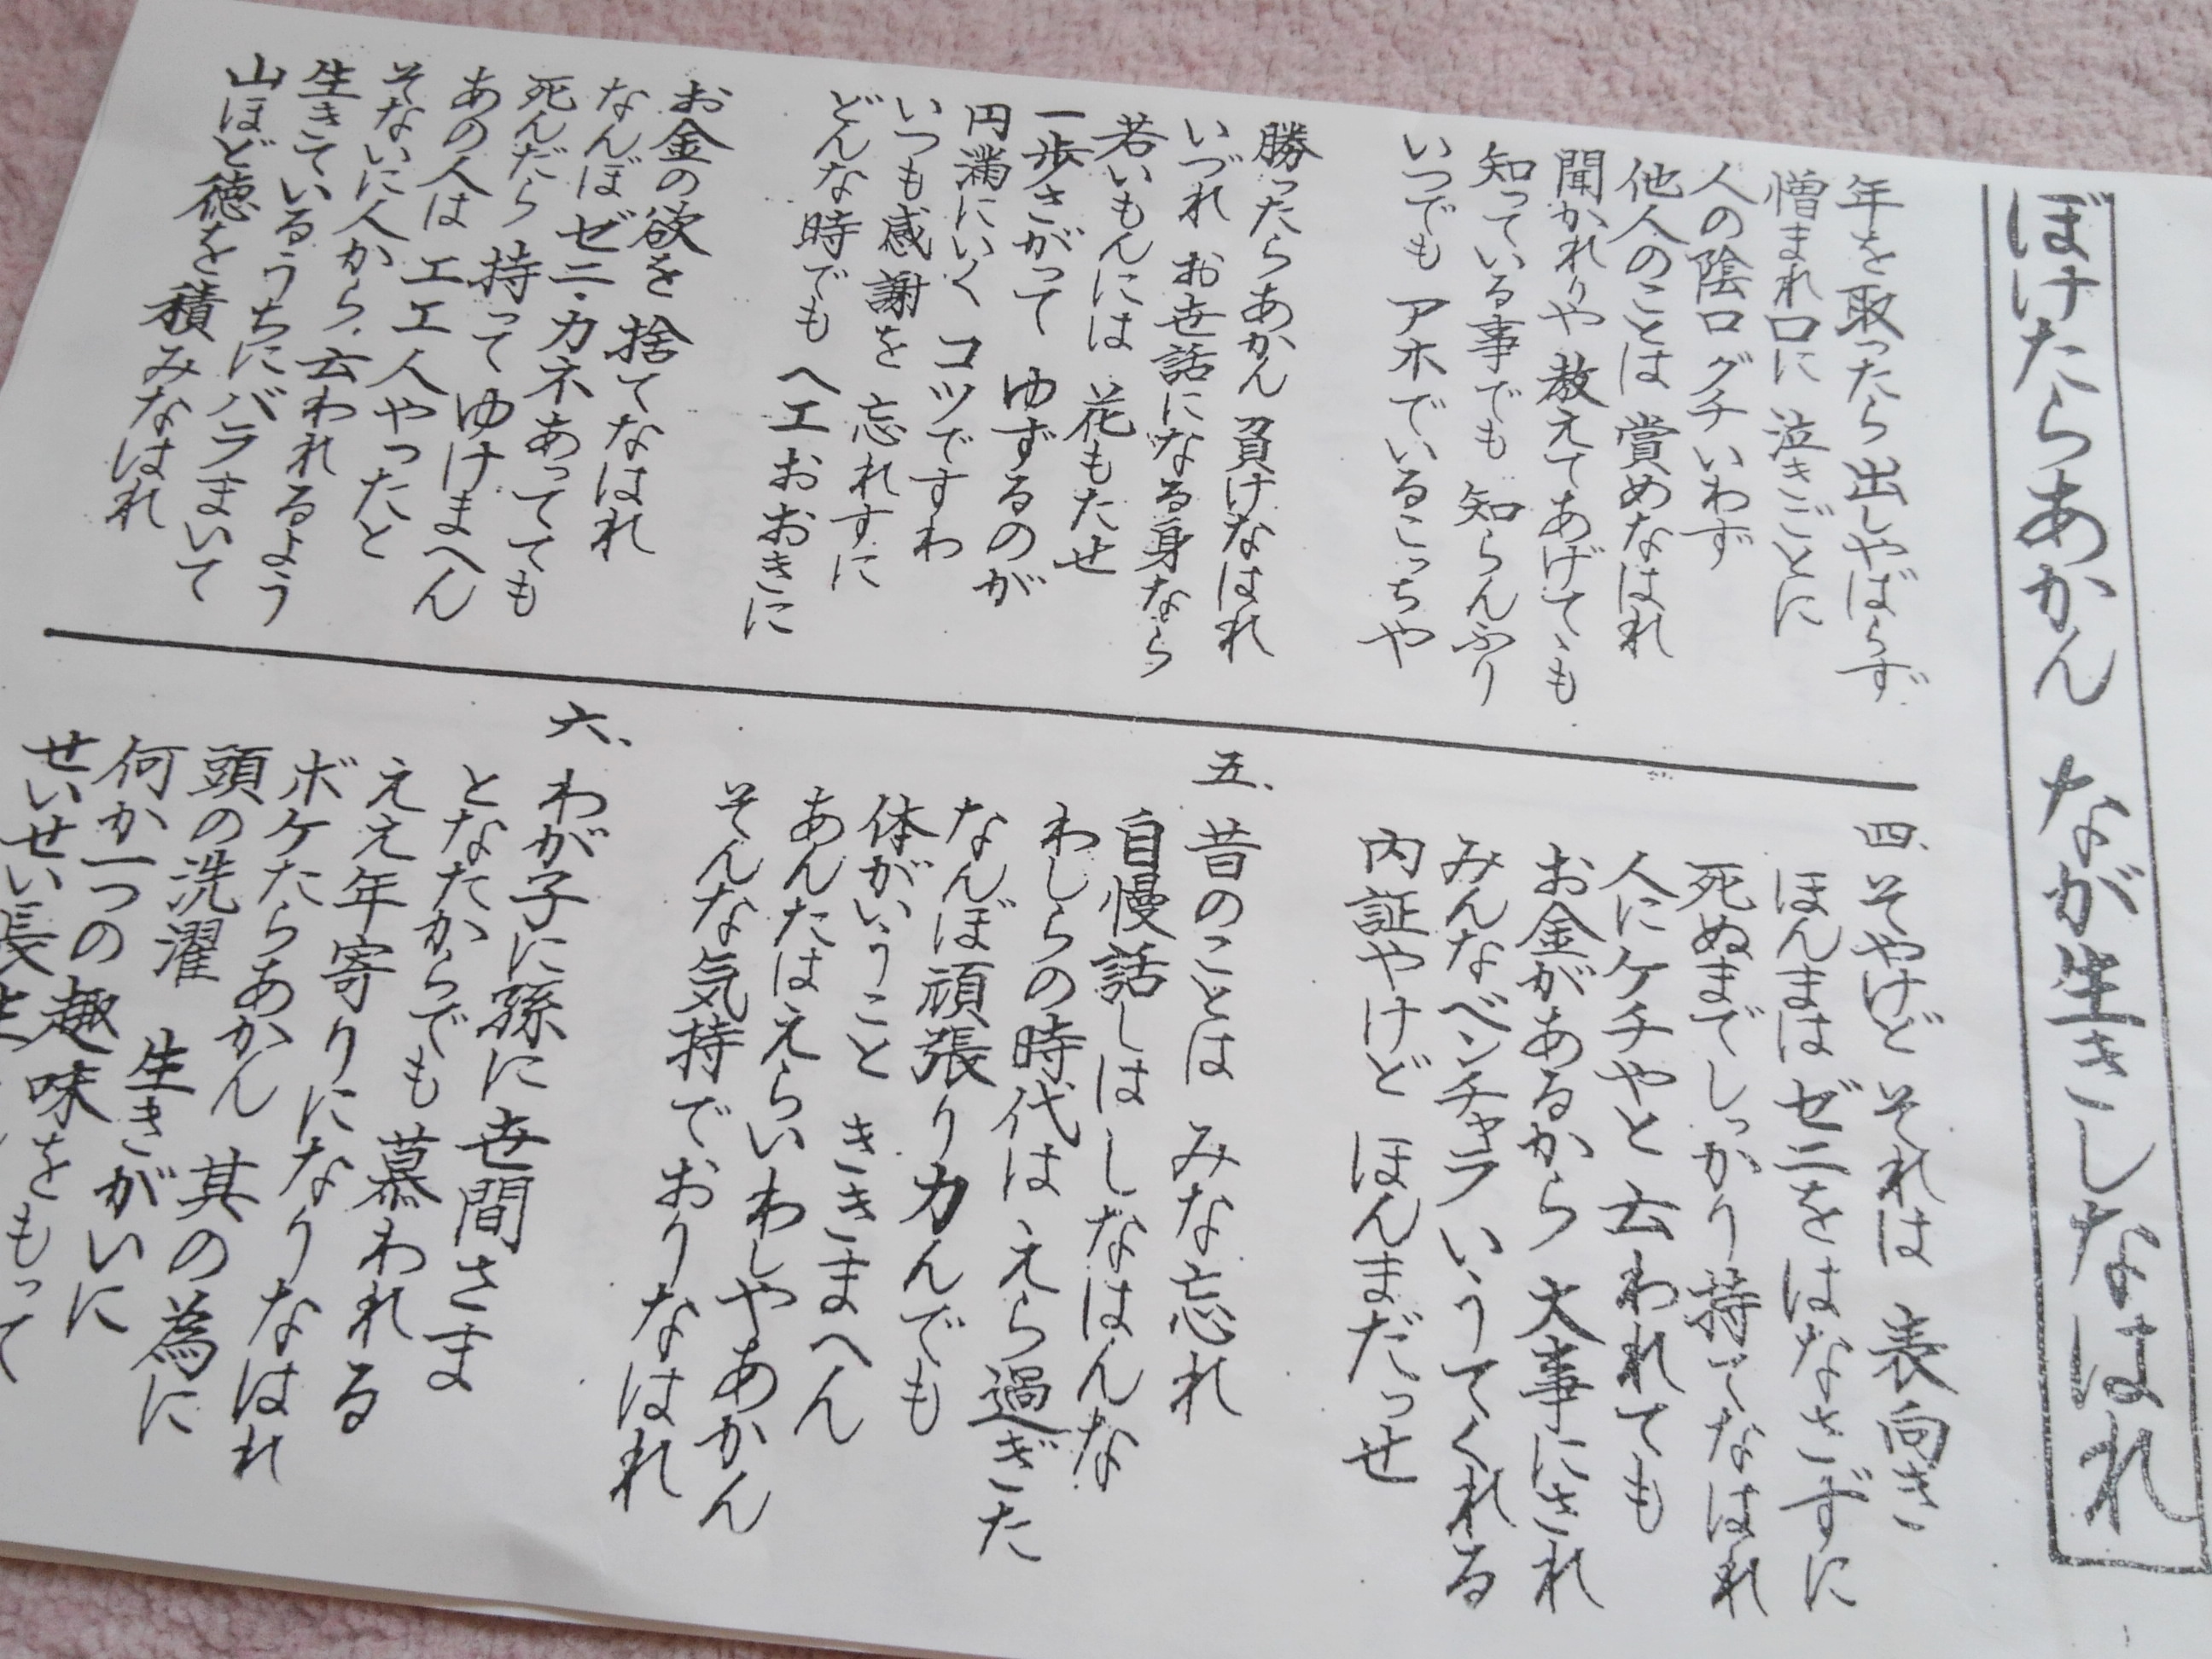 ぼけたらあかん なが生きしなはれ
年を取ったら出しゃばらず
憎まれ口に 泣きごとに
人の陰口 グチいわず
他人のことは 賞めなはれ
聞かれりゃ 教えてあげてゝも
知っている事でも 知らんふり
いつでも アホでいるこっちゃ
勝ったらあかん 負けなはれ
いづれ お世話になる身なら
若いもんには 花もたせ
一歩さがって ゆずるのが
円満にいく コツですわ
いつも感謝を 忘れずに
どんな時でも ヘエおおきに
お金の欲を 捨てなはれ
なんぼ ゼニ・カネあってても
死んだら 持って ゆけまへん
あの人は エエ人やったと
そないに人から、云われるよう
生きているうちにバラまいて
山ほど徳を 積みなはれ
四、そやけど それは 表向き
ほんまは ゼニをはなさずに
死ぬまでしっかり 持ってなはれ
人にケチやと 云われても
お金があるから 大事にされ
みんなベンチャラ いうてくれる
内証やけど ほんまだっせ
五、昔のことは みな忘れ
自慢話しは しなはんな
わしらの時代は えら過ぎた
なんぼ頑張り力んでも
体がいうこと ききまへん
あんたはえらい わしゃあかん
そんな気持で おりなはれ
六、わが子に孫に 世間さま
となたからでも 慕われる
ええ年寄りに なりなはれ
ボケたらあかん 其の為に
頭の洗濯 生きがいに
何か一つの 趣味をもって
せいせい長生